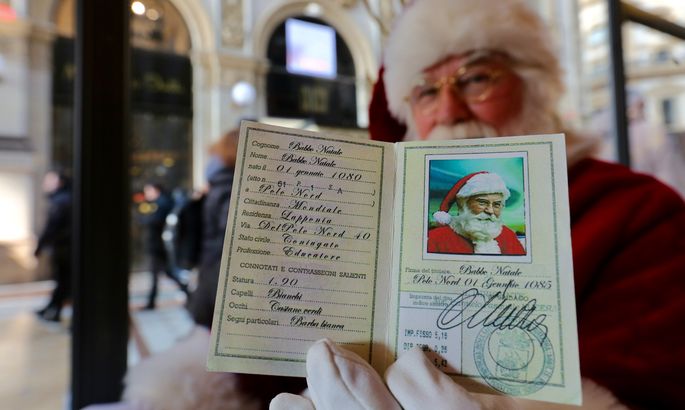 Cognome Babbo Natale
Nome Babbo Natale
nato il 01 gennaio 1080
(atto n. 01 P. 1 S. A )
a Polo Nord
Cittadinanza Mondiale
Residenza Lapponia
Via Del Polo Nord 40
Stato civile Coniugato
Professione Educatore
CONNOTATI E CONTRASSEGNI SALIENTI
Statura 1.90
Capelli Bianchi
Occhi Castano verdi
Segni particolari Barba bianca
Firma del titolare Babbo Natale
Polo Nord 01 Gennaio 1085
IMP.FISSO 5,16
5,42